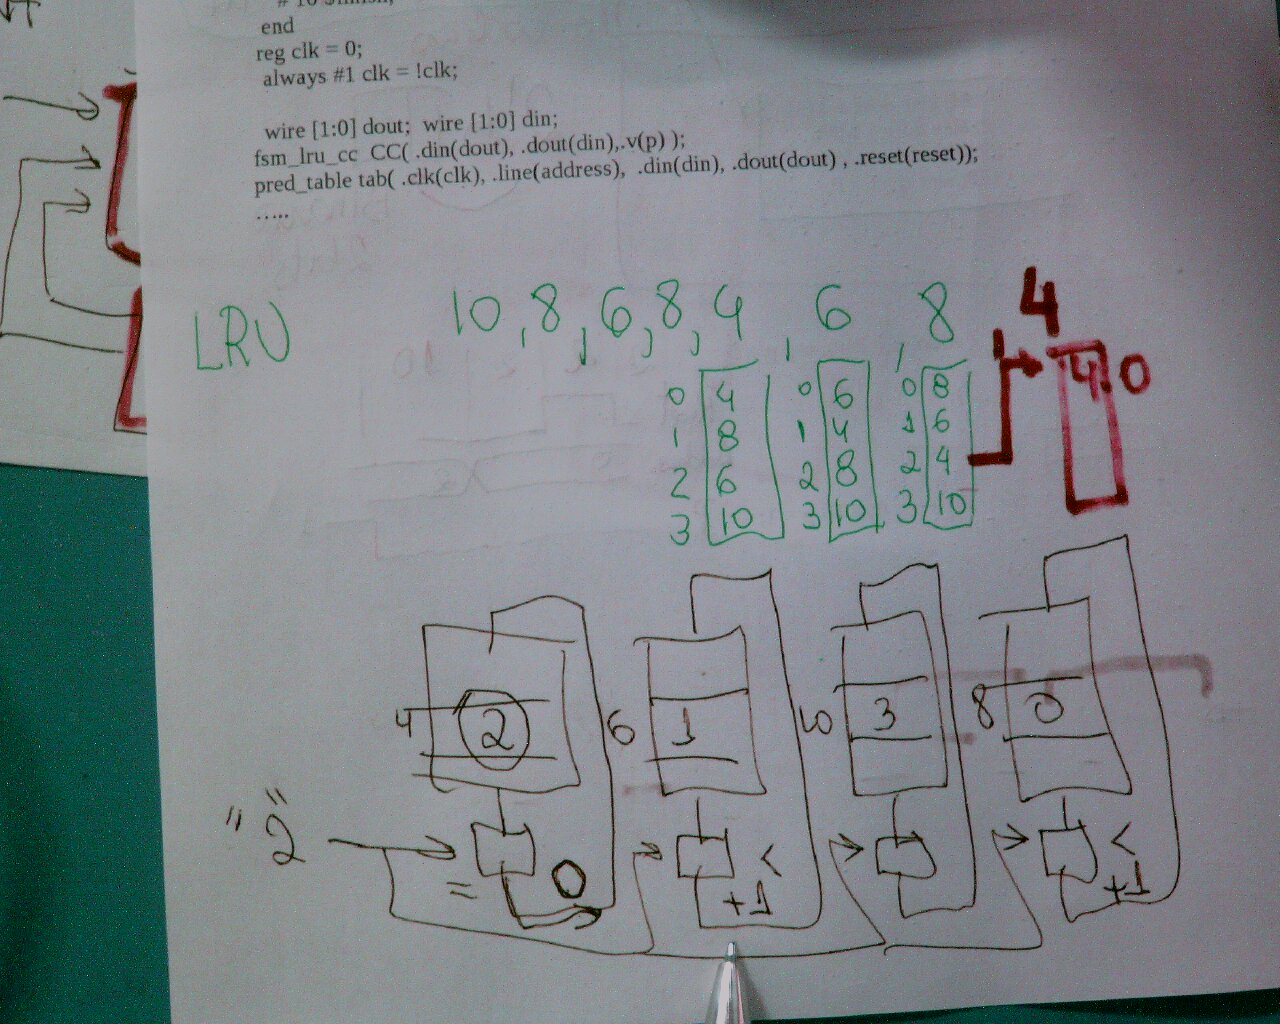 end
reg clk = 0;
always #1 clk = !clk;
wire [1:0] dout;  wire [1:0] din;
fsm_lru_cc  CC( .din(dout), .dout(din),.v(p) );
pred_table tab( .clk(clk), .line(address),  .din(din), .dout(dout) , .reset(reset));
.....
LRU 10, 8, 6, 8, 4, 6, 8 4
0 4 0 6 0 8 4 0
1 8 1 4 1 6
2 6 2 8 2 4
3 10 3 10 3 10
4 2 6 1 10 3 8 0
"2"
= 0 < +1 < +1